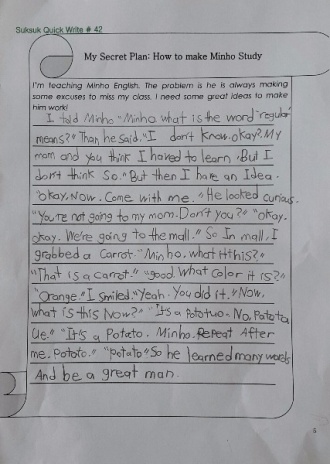 Suksuk Quick Write # 42
My Secret Plan: How to make Minho Study
I'm teaching Minho English. The problem is he is always making
some excuses to miss my class. I need some great ideas to make
him work!
I told Minho "Minho what is the word "regular"
means?" Than he said. "I don't know. okay? My
mom and you think I haved to learn. But I
don't think so." But then I have an Idea.
"okay. Now. Come with me." He looked curious.
"You're not going to my mom. Don't you?" "okay.
okay. We're going to the mall." So In mall. I
grabbed a Carrot. "Minho. what is this?"
"That is a carrot." "good What color it is?"
"Orange." I smiled. "Yeah. You did it." "Now.
what is this Now?" "It's a Pototuo. No. Potota
Ue." "It's a Potato. Minho. Repeat After
me. Pototo." "Potato" So he learned many words
And be a great man.
6